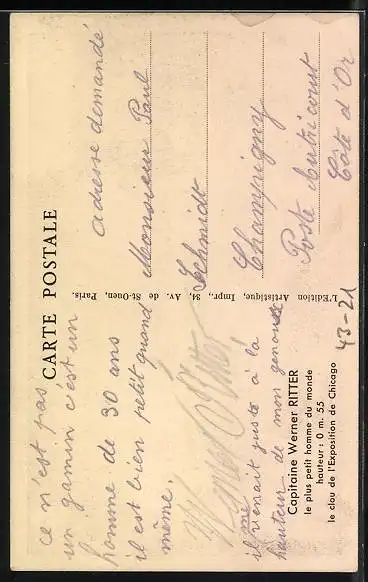 CARTE POSTALE
ce n'est pas
un gamin c'est un
homme de 30 ans
il est bien petit quand
même.
il me venait juste à la
hauteur de mon genoux
Capitaine Werner RITTER
le plus petit homme du monde
hauteur : 0 m. 55
le clou de l'Exposition de Chicago
L'Edition Artistique, Impr., 34, Av. de St-Ouen, Paris.
adresse demandé
Monsieur Paul
Schmidt
Champigny
Poste Autricourt
Côte d'Or
43-21